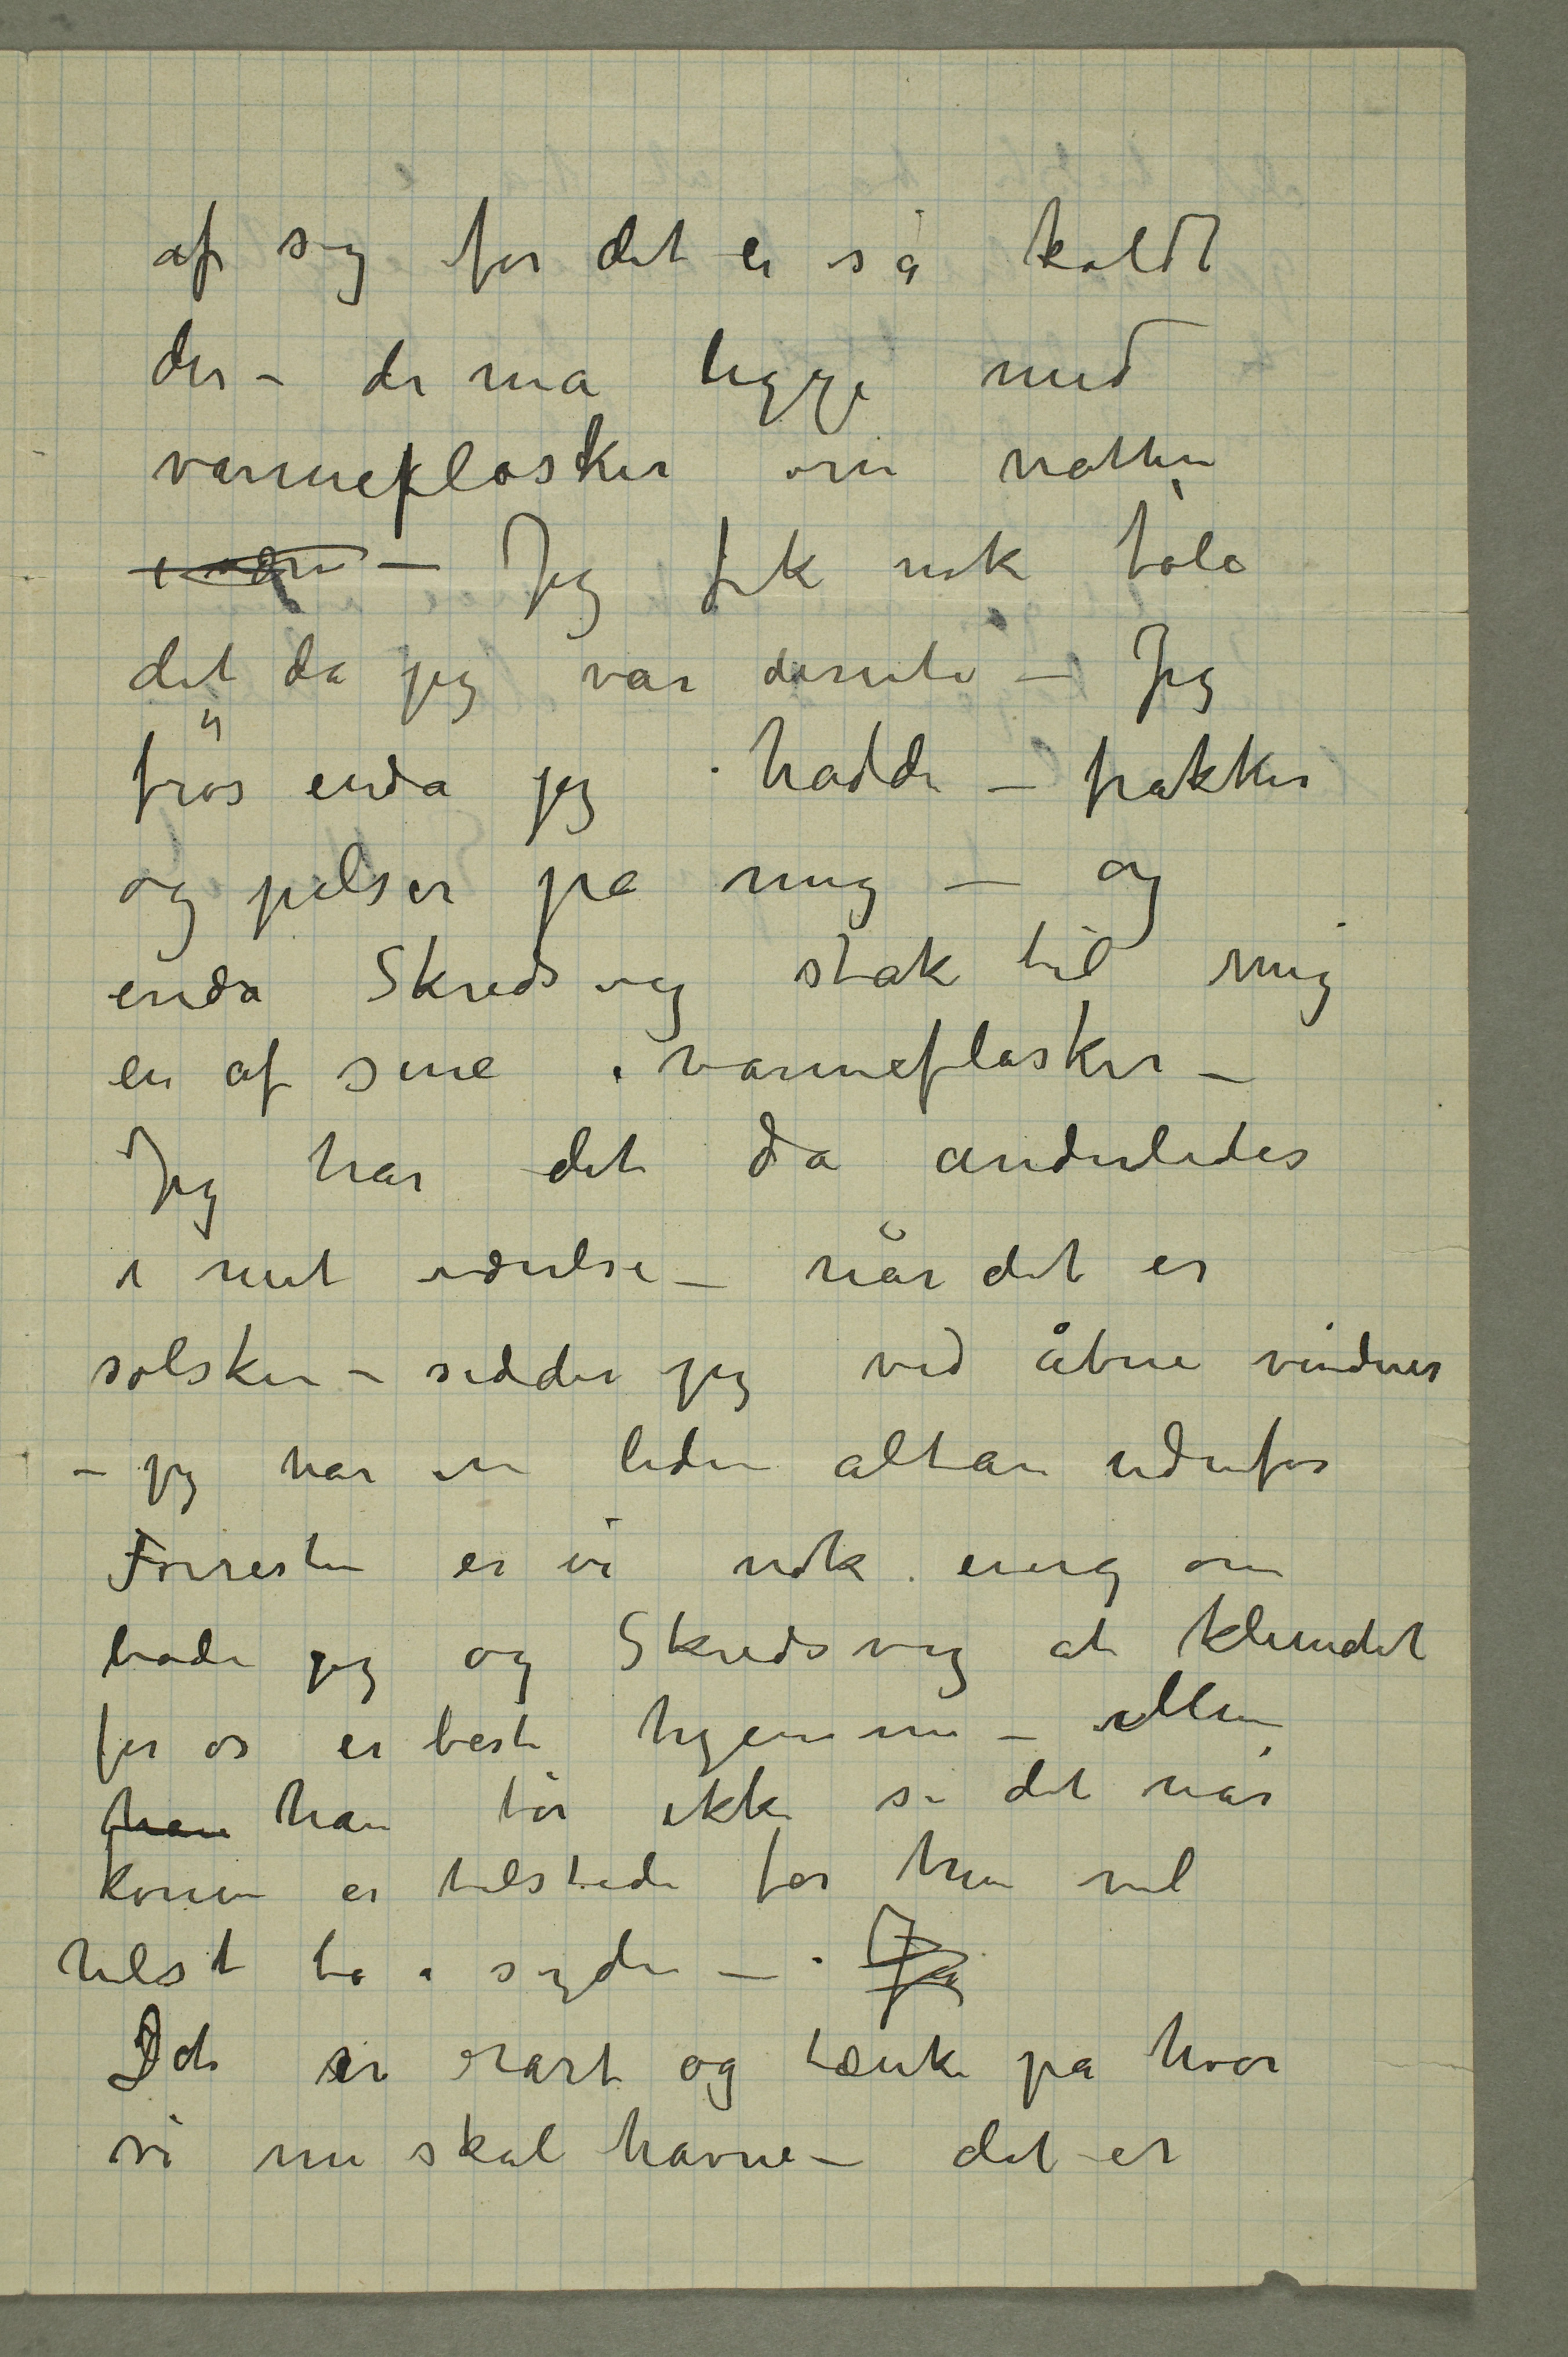 af sig for det er så koldt
der – de må ligge med
varmeflasker om natten
– Jeg fik nok føle
det da jeg var derute – Jeg
frøs enda jeg hadde – frakker
og pelser på mig – og
enda Skredsvig stak til mig
en af sine varmeflasker –
Jeg har det da anderledes
i mit værelse – når det er
solskin – sidder jeg ved åbne vinduer
– jeg har en liden altan udenfor
Forresten er vi nok enig om
både jeg og Skredsvig at klimadet
for os er best hjemme – Men
han han tør ikke si det når
konen er tilstede for hun vil
helst bo i syden – Jeg
Det er rart og tænke på hvor
vi nu skal havne – det er